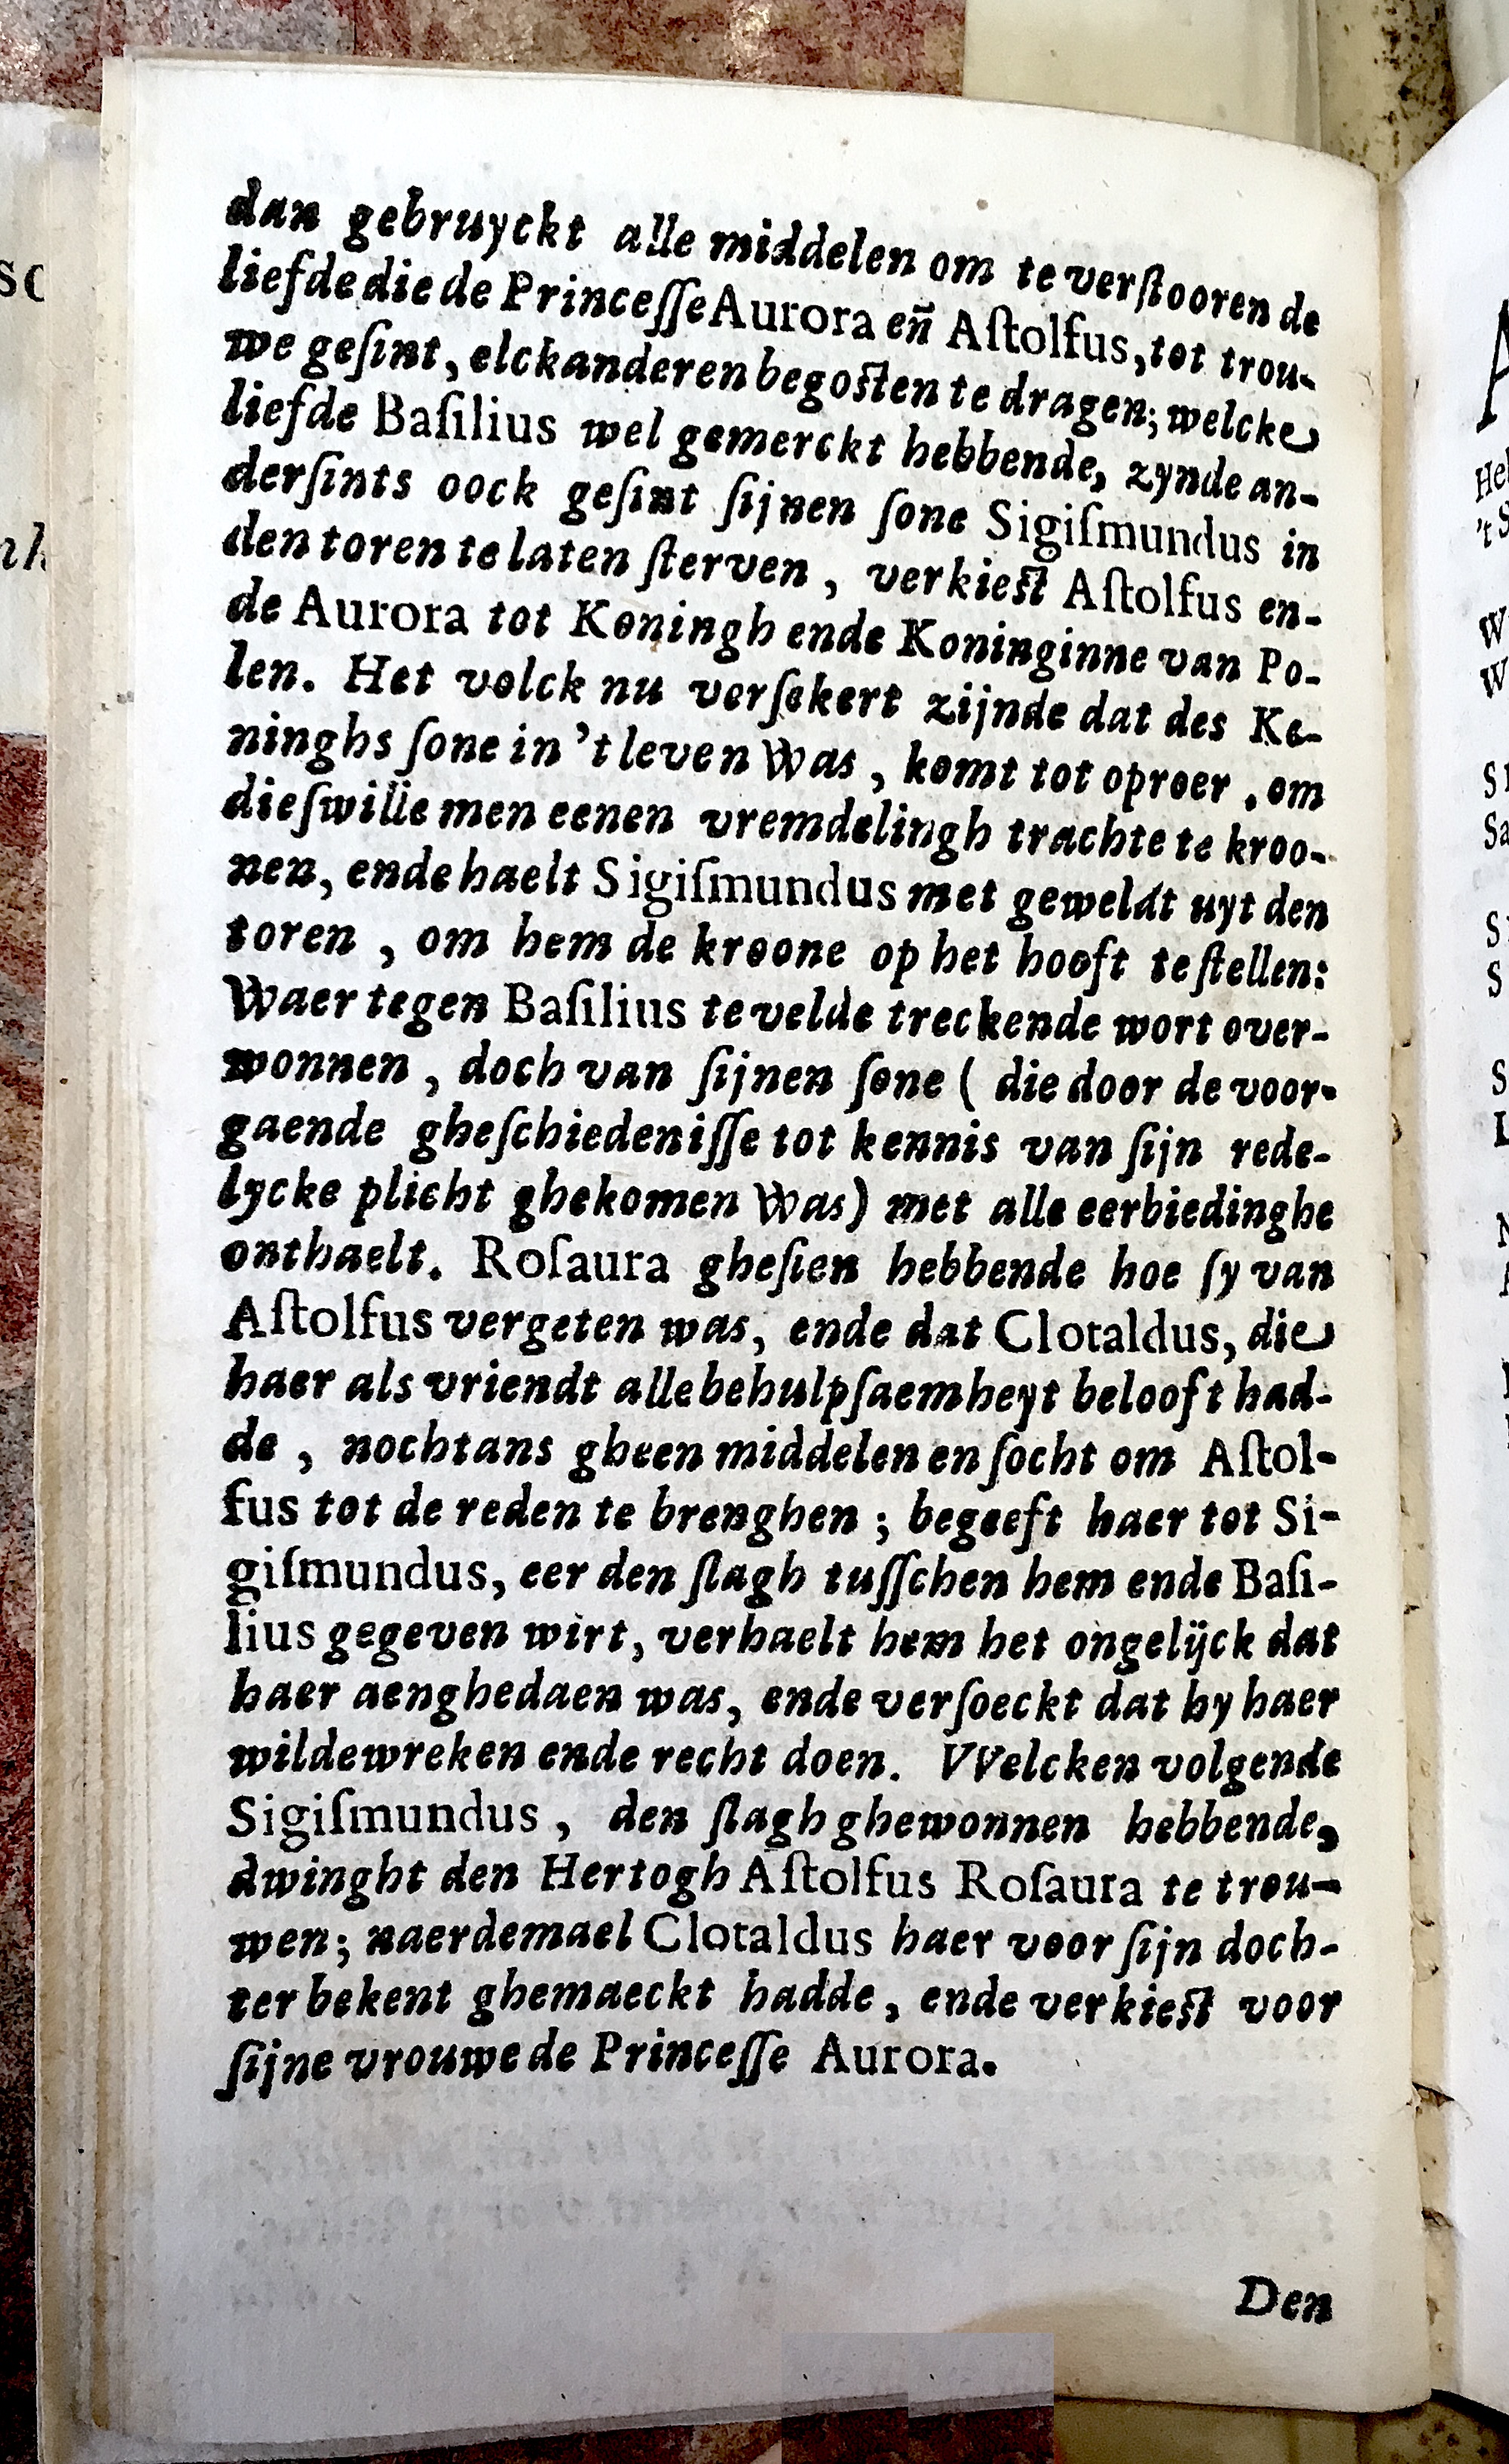 dan gebruyckt alle middelen om te verſtooren de
liefde die de Princeſſe Aurora eñ Aſtolfus, tot trou-
we geſint, elckanderen begoſten te dragen; welcke
liefde Baſilius wel gemerckt hebbende, zynde an-
derſints oock geſint ſijnen ſone Sigiſmundus in
den toren te laten ſterven, verkieſt Aſtolfus en-
de Aurora tot Koningh ende Koninginne van Po-
len. Het volck nu verſekert zijnde dat des Ko-
ninghs ſone in 't leven Was, komt tot oproer, om
dieſwille men eenen vremdelingh trachte te kroo-
nen, ende haelt Sigiſmundus met geweldt uyt den
toren, om hem de kroone op het hooft te ſtellen:
Waer tegen Baſilius te velde treckende wort over-
wonnen, doch van ſijnen ſone ( die door de voor-
gaende gheſchiedeniſſe tot kennis van ſijn rede-
lycke plicht ghekomen Was) met alle eerbiedinghe
onthaelt. Roſaura gheſien hebbende hoe ſy van
Aſtolfus vergeten was, ende dat Clotaldus, die
haer als vriendt alle behulpſaemheyt belooft had-
de, nochtans gheen middelen en ſocht om Aſtol-
fus tot de reden te brenghen; begeeft haer tot Si-
giſmundus, eer den ſlagh tuſſchen hem ende Baſi-
lius gegeven wirt, verhaelt hem het ongelijck dat
haer aenghedaen was, ende verſoeckt dat hy haer
wilde wreken ende recht doen. VVelcken volgende
Sigiſmundus, den ſlagh ghewonnen hebbende,
dwinght den Hertogh Aſtolfus Roſaura te trou-
wen; naerdemael Clotaldus haer voor ſijn doch-
ter bekent ghemaeckt hadde, ende verkieſt voor
ſijne vrouwe de Princeſſe Aurora.
Den